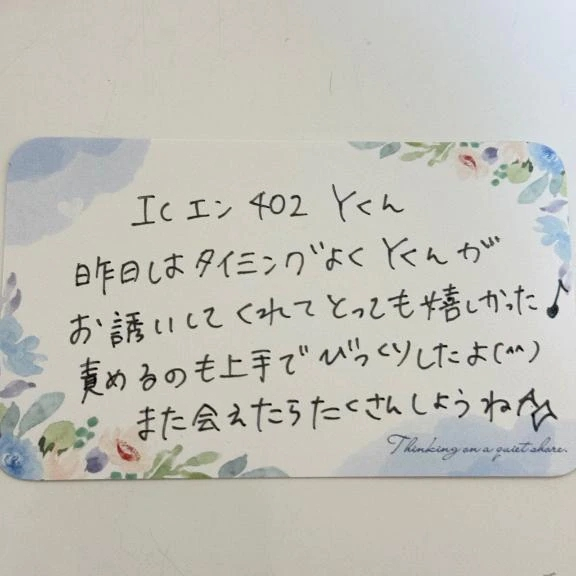 ICエン 402 Yくん
昨日はタイミングよくYくんが
お誘いしてくれてとっても嬉しかった♪
責めるのも上手でびっくりしたよ(^^)
また会えたらたくさんしようね☆
Thinking on a quiet shore.